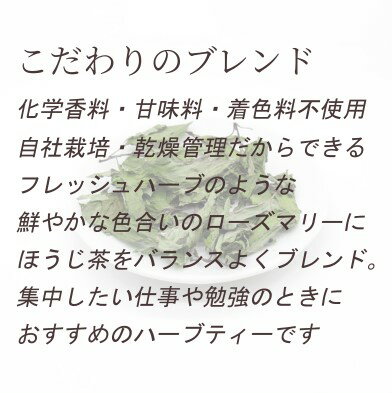 こだわりのブレンド
化学香料・甘味料・着色料不使用
自社栽培・乾燥管理だからできる
フレッシュハーブのような
鮮やかな色合いのローズマリーに
ほうじ茶をバランスよくブレンド。
集中したい仕事や勉強のときに
おすすめのハーブティーです